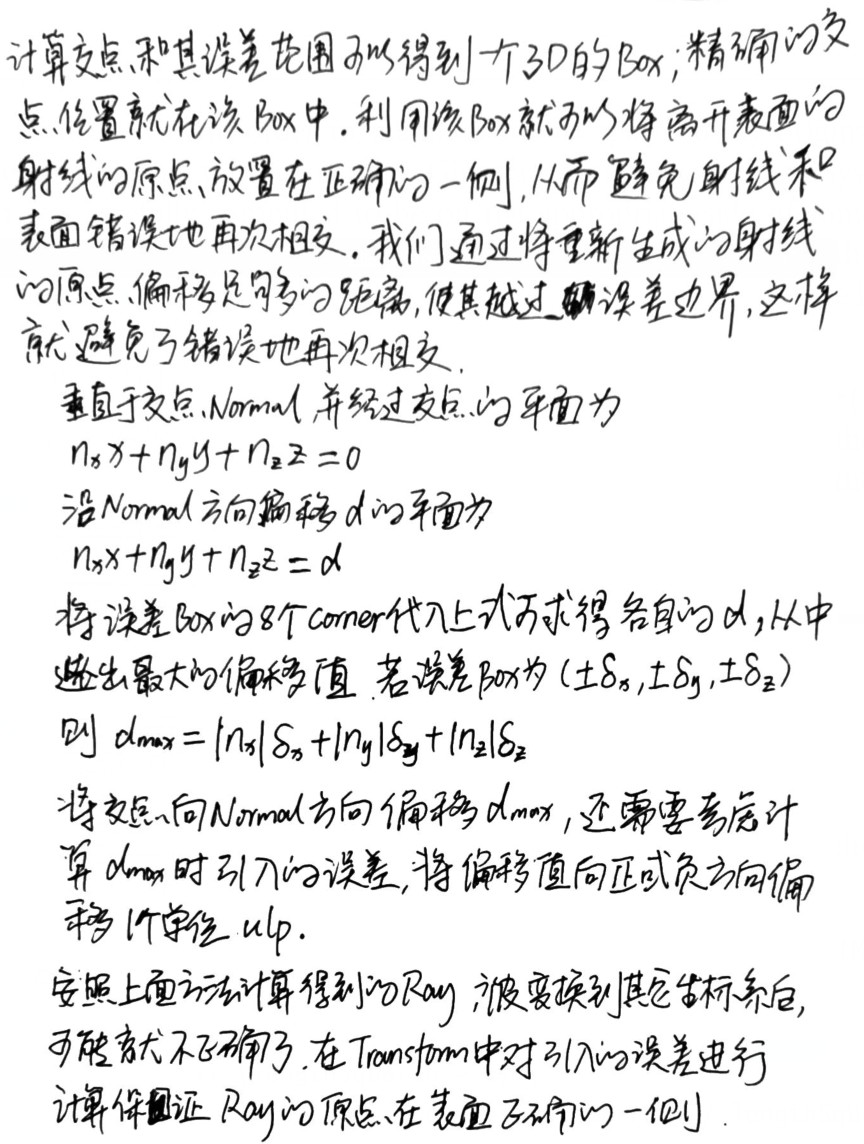 计算交点和其误差范围可以得到一个3D的Box；精确的交
点位置就在该Box中．利用该Box就可以将离开表面的
射线的原点放置在正确的一侧，从而避免射线和
表面错误地再次相交．我们通过将重新生成的射线
的原点偏移足够多的距离，使其越过误差边界，这样
就避免了错误地再次相交．
垂直于交点Normal并经过交点的平面为
nₓx+n_yy+n_zz=0
沿Normal方向偏移d的平面为
nₓx+n_yy+n_zz=d
将误差Box的8个corner代入上式可求得各自的d，从中
选出最大的偏移值．若误差Box为(±δₓ,±δ_y,±δ_z)
则 d_max=|nₓ|δₓ+|n_y|δ_y+|n_z|δ_z
将交点向Normal方向偏移d_max，还需要考虑计
算d_max时引入的误差，将偏移值向正或负方向偏
移1个单位ulp．
安照上面方法计算得到的Ray，被变换到其它坐标系后，
可能就不正确了．在Transform中对引入的误差进行
计算保证Ray的原点在表面正确的一侧．